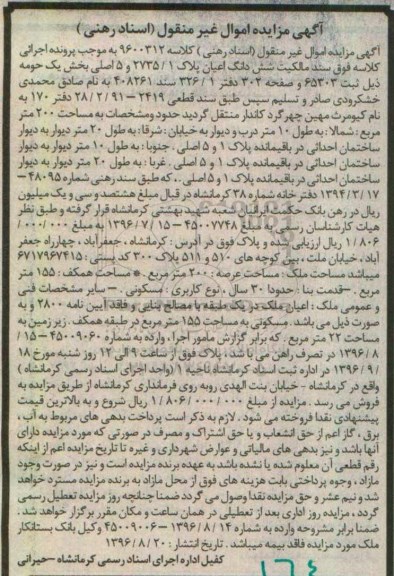 آگهی مزایده اموال غیر منقول (اسناد رهنی)
آگهی مزایده اموال غیر منقول (اسناد رهنی) کلاسه ۹۶۰۰۳۱۲ به موجب پرونده اجرائی
کلاسه فوق سند مالکیت شش دانگ اعیان پلاک ۱ / ۲۷۳۵ و ۵ اصلی بخش یک حومه
ذیل ثبت ۶۵۳۰۳ و صفحه ۳۰۲ دفتر ۱ / ۳۲۶ سند ۴۰۸۲۶۱ به نام صادق محمدی
خشکرودی صادر و تسلیم سپس طبق سند قطعی ۲۴۱۹ – ۹۱ / ۲ / ۲۸ دفتر ۱۷۰ به
نام کیومرث مهین چهرگرد کاندار منتقل گردید حدود ومشخصات به مساحت ۲۰۰ متر
مربع : شمالا : به طول ۱۰ متر درب و دیوار به خیابان : شرقا : به طول ۲۰ متر دیوار به دیوار
ساختمان احداثی در باقیمانده پلاک ۱ و ۵ اصلی . جنوبا : به طول ۱۰ متر دیوار به دیوار
ساختمان احداثی در باقیمانده پلاک ۱ و ۵ اصلی . غربا : به طول ۲۰ متر دیوار به دیوار
ساختمان احداثی در باقیمانده پلاک ۱ و ۵ اصلی .. که طبق سند رهنی شماره ۴۸۰۹۵ –
۱۳۹۴/۳/۱۷ دفتر خانه شماره ۳۸ کرمانشاه در قبال مبلغ هشتصد و سی و یک میلیون
ریال در رهن بانک حکمت ایرانیان شعبه شهید بهشتی کرمانشاه قرار گرفته و طبق نظر
هیات کارشناسان رسمی به مبلغ ۴۵۰۰۷۷۴۸ – ۱۳۹۶/۷/۱۵ به مبلغ ۰۰۰/۰۰۰/
۱/۸۰۶ ریال ارزیابی شده و پلاک فوق در آدرس : کرمانشاه ، جعفرآباد ، چهارراه جعفر
آباد ، خیابان ملت ، بین کوچه های ۵۱۰ و ۵۱۱ پلاک ۳۰۰ کد پستی : ۶۷۱۷۹۶۷۴۱۵
میباشد مساحت ملک : مساحت عرصه : ۲۰۰ متر مربع . * مساحت همکف : ۱۵۵ متر
مربع . –قدمت بنا : حدودا ۳۰ سال . نوع کاربری : مسکونی . – سایر مشخصات فنی
و عمومی ملک : اعیان ملک در یک طبقه با مصالح بنایی و فاقد آیین نامه ۲۸۰۰ و به
صورت ذیل می باشد . مسکونی به مساحت ۱۵۵ متر مربع در طبقه همکف . زیر زمین به
مساحت ۲۲ متر مربع . که برابر گزارش مامور اجرا ، وارده به شماره ۴۵۰۰۹۰۶۰ – ۱۵ /
۱۳۹۶/۸ در تصرف راهن می باشد ، پلاک فوق از ساعت ۹ الی ۱۲ روز شنبه مورخ ۱۸
/ ۹ / ۱۳۹۶ در اداره ثبت اسناد کرمانشاه ناحیه ۱ (واحد اجرای اسناد رسمی کرمانشاه )
واقع در کرمانشاه – خیابان بنت الهدی روبه روی فرمانداری کرمانشاه از طریق مزایده به
فروش می رسد . مزایده از مبلغ ۰۰۰ / ۰۰۰ / ۱/۸۰۶ ریال شروع و به بالاترین قیمت
پیشنهادی نقدا فروخته می شود . لازم به ذکر است پرداخت بدهی های مربوط به آب ،
برق ، گاز اعم از حق انشعاب و یا حق اشتراک و مصرف در صورتی که مورد مزایده دارای
آنها باشد و نیز بدهی های مالیاتی و عوارض شهرداری و غیره تا تاریخ مزایده اعم از اینکه
رقم قطعی آن معلوم شده یا نشده باشد به عهده برنده مزایده است و نیز در صورت وجود
مازاد ، وجوه پرداختی بابت هزینه های فوق از محل مازاد به برنده مزایده مسترد خواهد
شد و نیم عشر و حق مزایده نقدا وصول می گردد ضمنا چنانچه روز مزایده تعطیل رسمی
گردد ، مزایده روز اداری بعد از تعطیلی در همان ساعت و مکان مقرر برگزار خواهد شد .
ضمنا برابر مشروحه وارده به شماره ۴۵۰۰۹۰۰۶ – ۱۳۹۶/۸/۱۴ وکیل بانک بستانکار
ملک مورد مزایده فاقد بیمه میباشد . تاریخ انتشار : ۲۰ / ۸ / ۱۳۹۶
کفیل اداره اجرای اسناد رسمی کرمانشاه –حیرانی
۱۶۴